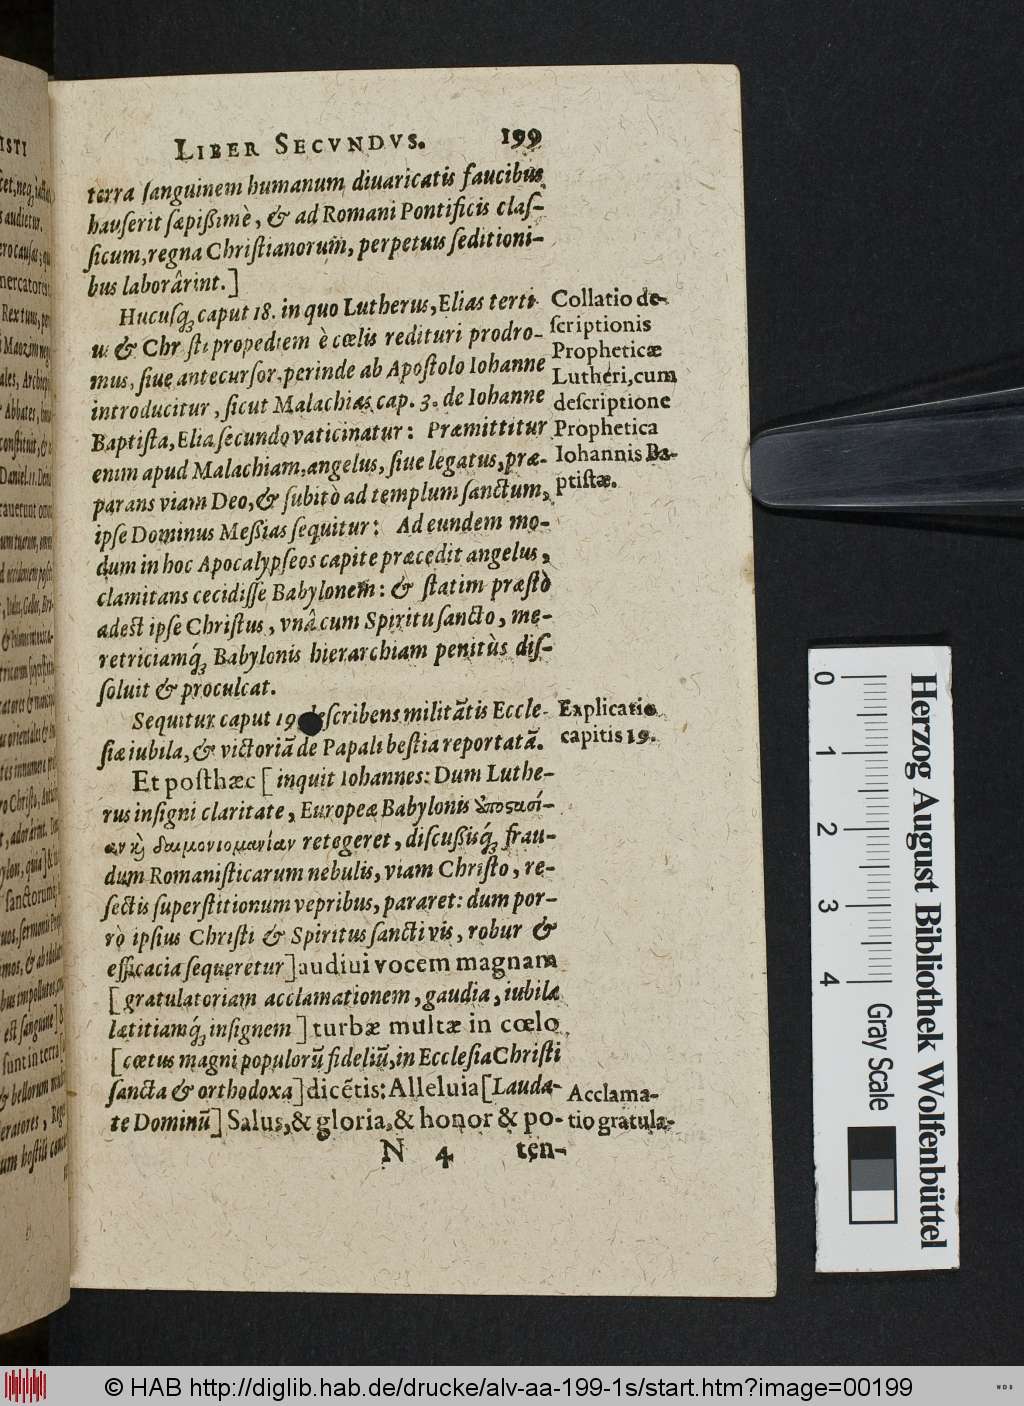 LIBER SECVNDVS. 199
terra ſanguinem humanum diuaricatis faucibus
hauſerit ſæpißimè, & ad Romani Pontificis claſ-
ſicum, regna Chriſtianorum, perpetuus ſeditioni-
bus laborârint.]
Hucuſq́ꝫ caput 18. in quo Lutherus, Elias terti
& Chr ſti propediem è cœlis redituri prodro-
mus, ſiue antecurſor, perinde ab Apoſtolo Iohanne
introducitur, ſicut Malachias cap. 3. de Iohanne
Baptiſta, Elia ſecundo vaticinatur: Præmittitur
enim apud Malachiam, angelus, ſiue legatus, præ-
parans viam Deo, & ſubitò ad templum ſanctum,
ipſe Dominus Meßias ſequitur: Ad eundem mo-
dum in hoc Apocalypſeos capite præcedit angelus,
clamitans cecidiſſe Babylonem: & ſtatim præſtò
adeſt ipſe Chriſtus, vnâ cum Spiritu ſancto, me-
retriciamq́ꝫ Babylonis hierarchiam penitùs diſ-
ſoluit & proculcat.
Sequitur caput 19 deſcribens militãtis Eccle-
ſiæ iubila, & victoriã de Papali beſtia reportatã.
Et poſthæc [inquit Iohannes: Dum Luthe-
rus inſigni claritate, Europeæ Babylonis ὑποςασί-
αν κὶ δαιμονιομανίαν retegeret, diſcußisq́ꝫ frau-
dum Romaniſticarum nebulis, viam Chriſto, re-
ſectis ſuperſtitionum vepribus, pararet: dum por-
rò ipſius Chriſti & Spiritus ſancti vis, robur &
efficacia ſequeretur] audiui vocem magnam
[gratulatoriam acclamationem, gaudia, iubila
lætitiamq́ꝫ inſignem] turbæ multæ in cœlo
[cœtus magni populorũ fideliũ, in Eccleſia Chriſti
ſancta & orthodoxa] dicẽtis: Alleluia [Lauda-
te Dominũ] Salus, & gloria, & honor & po-
N 4 ten-
Collatio de-
ſcriptionis
Propheticæ
Lutheri, cum
deſcriptione
Prophetica
Iohannis Ba-
ptiſtæ.
Explicatio
capitis 19.
Acclama-
tio gratula-
Herzog August Bibliothek Wolfenbüttel
0 1 2 3 4
Gray Scale
© HAB http://diglib.hab.de/drucke/alv-aa-199-1s/start.htm?image=00199